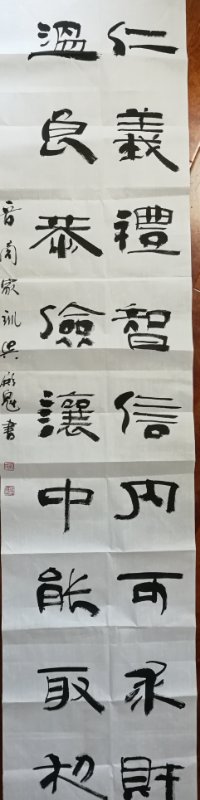 仁義禮智信内可求財
溫良恭儉讓中能取利
晋商家訓吴書